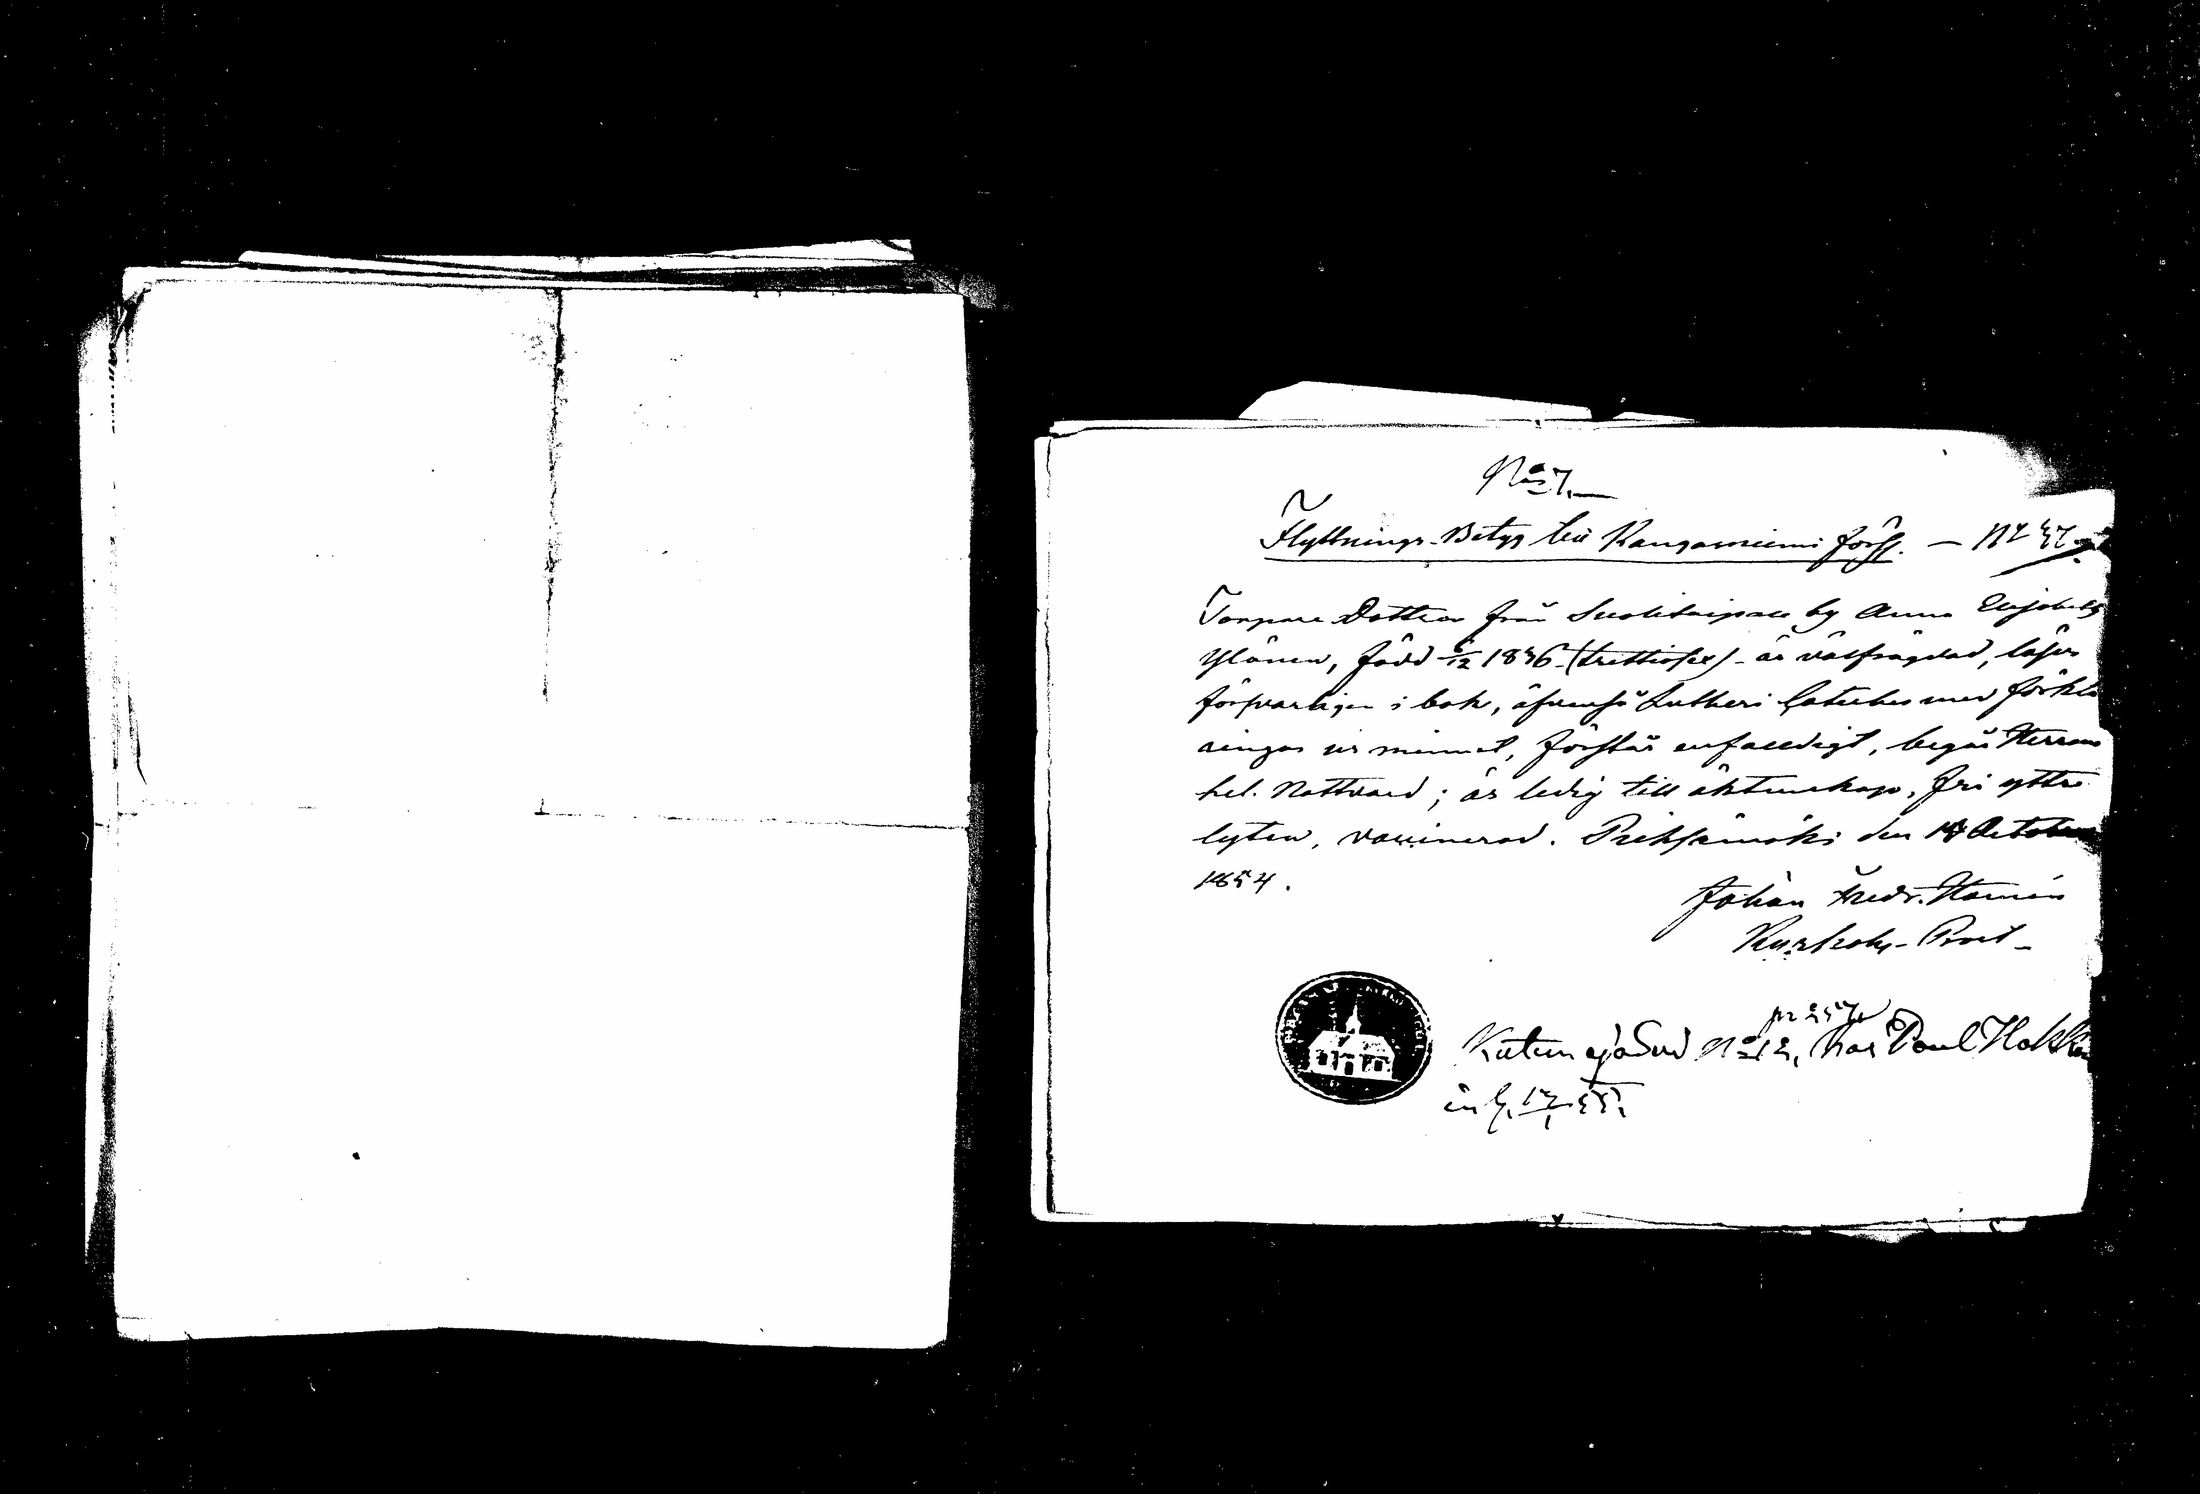 No 7.
Flyttnings-Betyg till Kangasniemi förs. —
Torpare Dottren från Suolitaipale by Anna Elisabeth
Ylönen, född 6/12 1836 (trettiosex) är välfrägdad, läser
försvarligen i bok, äfvenså Lutheri Cateches med förkla
ringar ur minnet, förstår enfaldigt, begår Herrans
hel. Nattvard; är ledig till äktenskap, fri yttre
lyten, vaccinerad. Pieksämäki den 14 October
1854.
Johan Fredr.
Kyrkoh. Prost
No 12, hos Paul
inl. 17/1 55.